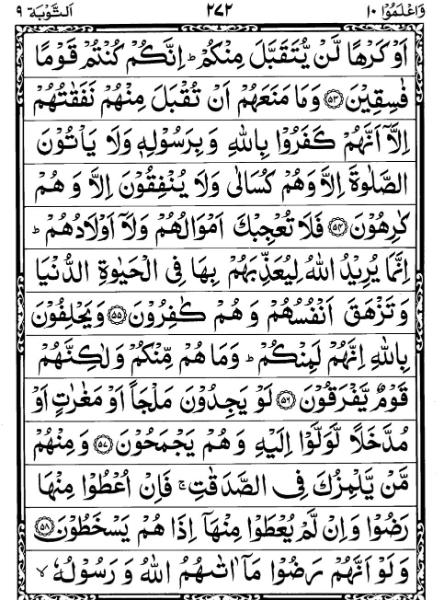 وَاعْلَمُوْٓا ١٠ ٢٧٢ اَلتَّوْبَة ٩
اَوْ كَرْهًا لَّنْ يُّتَقَبَّلَ مِنْكُمْ ؕ اِنَّكُمْ كُنْتُمْ قَوْمًا
فٰسِقِيْنَ ﴿٥٣﴾ وَمَا مَنَعَهُمْ اَنْ تُقْبَلَ مِنْهُمْ نَفَقٰتُهُمْ
اِلَّاۤ اَنَّهُمْ كَفَرُوْا بِاللّٰهِ وَبِرَسُوْلِهٖ وَلَا يَاْتُوْنَ
الصَّلٰوةَ اِلَّا وَهُمْ كُسَالٰى وَلَا يُنْفِقُوْنَ اِلَّا وَهُمْ
كٰرِهُوْنَ ﴿٥٤﴾ فَلَا تُعْجِبْكَ اَمْوَالُهُمْ وَلَاۤ اَوْلَادُهُمْ ؕ
اِنَّمَا يُرِيْدُ اللّٰهُ لِيُعَذِّبَهُمْ بِهَا فِى الْحَيٰوةِ الدُّنْيَا
وَتَزْهَقَ اَنْفُسُهُمْ وَهُمْ كٰفِرُوْنَ ﴿٥٥﴾ وَيَحْلِفُوْنَ
بِاللّٰهِ اِنَّهُمْ لَمِنْكُمْ ؕ وَمَا هُمْ مِّنْكُمْ وَلٰكِنَّهُمْ
قَوْمٌ يَّفْرَقُوْنَ ﴿٥٦﴾ لَوْ يَجِدُوْنَ مَلْجَاً اَوْ مَغٰرٰتٍ اَوْ
مُدَّخَلًا لَّوَلَّوْا اِلَيْهِ وَهُمْ يَجْمَحُوْنَ ﴿٥٧﴾ وَمِنْهُمْ
مَّنْ يَّلْمِزُكَ فِى الصَّدَقٰتِ ۚ فَاِنْ اُعْطُوْا مِنْهَا
رَضُوْا وَاِنْ لَّمْ يُعْطَوْا مِنْهَاۤ اِذَا هُمْ يَسْخَطُوْنَ ﴿٥٨﴾
وَلَوْ اَنَّهُمْ رَضُوْا مَاۤ اٰتٰىهُمُ اللّٰهُ وَرَسُوْلُهٗ ۙ